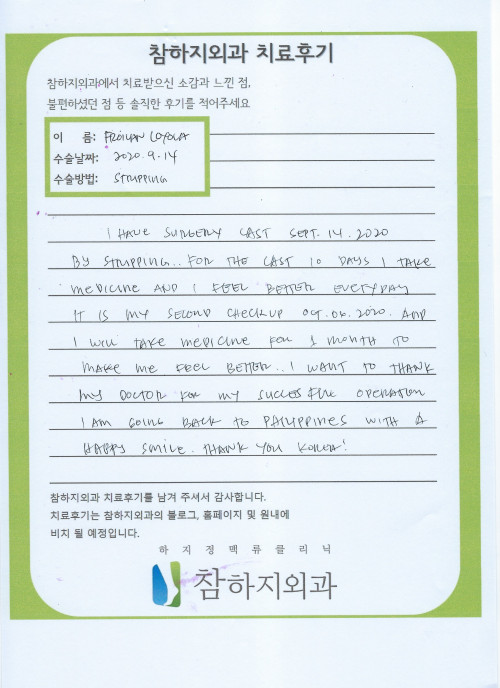 참하지외과 치료후기
참하지외과에서 치료받으신 소감과 느낀 점,
불편하셨던 점 등 솔직한 후기를 적어주세요
이 름: FROILAN LOYOLA
수술날짜: 2020.9.14
수술방법: STRIPPING
I HAVE SURGERY LAST SEPT. 14. 2020
BY STRIPPING.. FOR THE LAST 10 DAYS I TAKE
MEDICINE AND I FEEL BETTER EVERYDAY
IT IS MY SECOND CHECKUP OCT.06.2020. AND
I WILL TAKE MEDICINE FOR 1 MONTH TO
MAKE ME FEEL BETTER.. I WANT TO THANK
MY DOCTOR FOR MY SUCCESSFUL OPERATION
I AM GOING BACK TO PHILIPPINES WITH A
HAPPY SMILE. THANK YOU KOREA!
참하지외과 치료후기를 남겨 주셔서 감사합니다.
치료후기는 참하지외과의 블로그, 홈페이지 및 원내에
비치 될 예정입니다.
하지정맥류클리닉
참하지외과